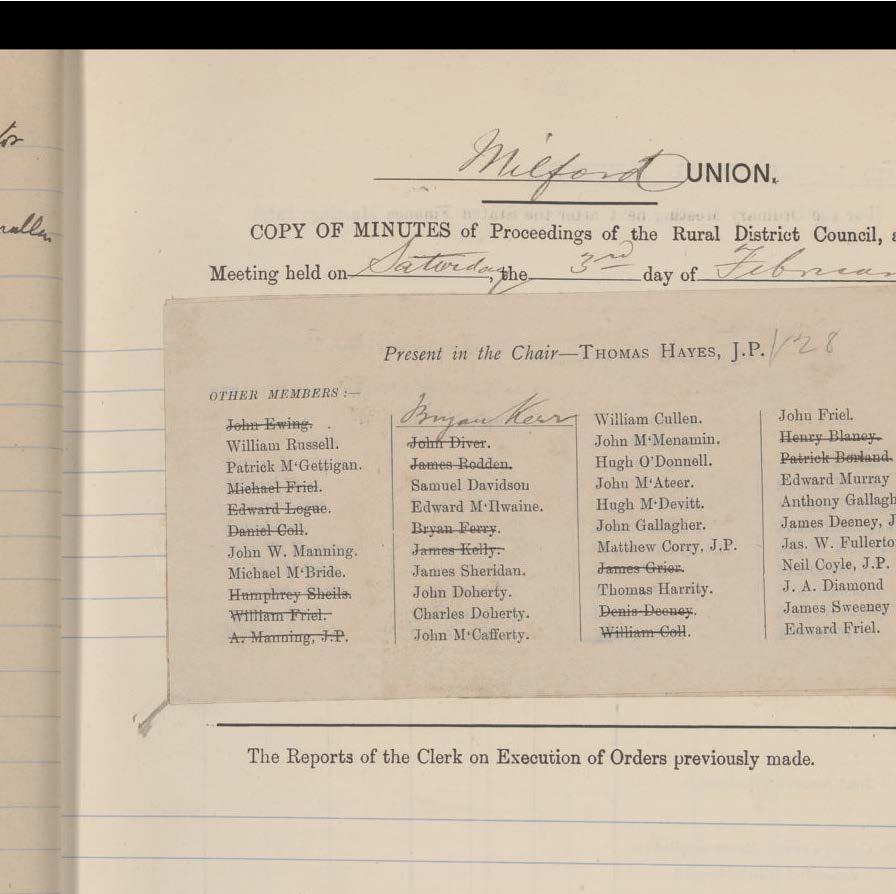 tor
Milford UNION.
COPY OF MINUTES of Proceedings of the Rural District Council,
Meeting held on Saturday, the 3rd day of
Present in the Chair—THOMAS HAYES, J.P. 128
OTHER MEMBERS:—
John Ewing.
William Russell.
Patrick M‘Gettigan.
Michael Friel.
Edward Logue.
Daniel Coll.
John W. Manning.
Michael M‘Bride.
Humphrey Sheils.
William Friel.
A. Manning, J.P.
Bryan Kerr
John Diver.
James Rodden.
Samuel Davidson
Edward M‘Ilwaine.
Bryan Ferry.
James Kelly.
James Sheridan.
John Doherty.
Charles Doherty.
John M‘Cafferty.
William Cullen.
John M‘Menamin.
Hugh O’Donnell.
John M‘Ateer.
Hugh M‘Devitt.
John Gallagher.
Matthew Corry, J.P.
James Grier.
Thomas Harrity.
Denis Deeney.
William Coll.
John Friel.
Henry Blaney.
Patrick Borland.
Edward Murray
Anthony Gallagh
James Deeney, J
Jas. W. Fullerto
Neil Coyle, J.P.
J. A. Diamond
James Sweeney
Edward Friel.
The Reports of the Clerk on Execution of Orders previously made.